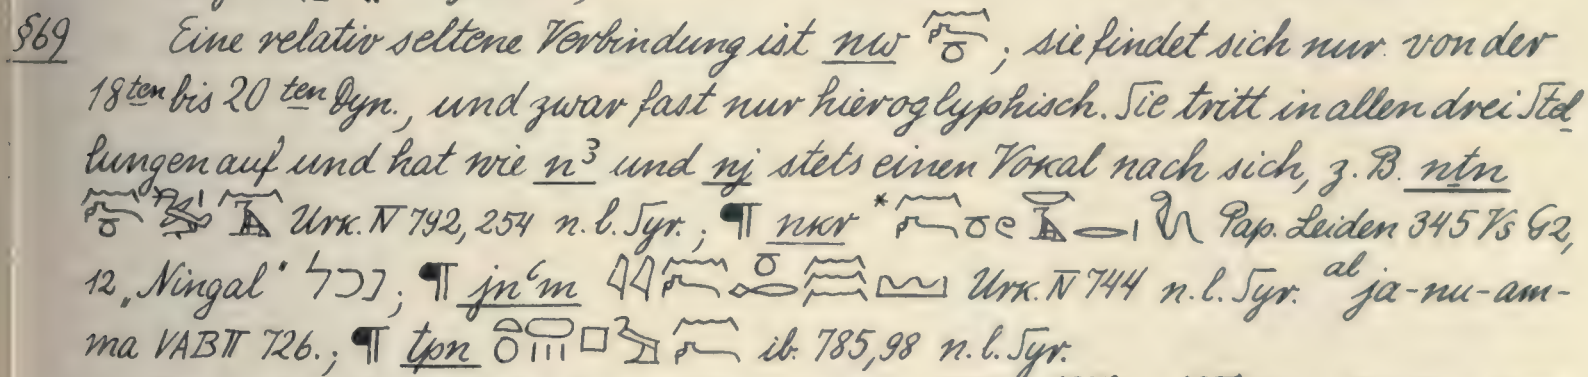 §69 Eine relativ seltene Verbindung ist nw ; sie findet sich nur von der
18ten bis 20ten Dyn., und zwar fast nur hieroglyphisch. Sie tritt in allen drei Stel-
lungen auf und hat wie n³ und nj stets einen Vokal nach sich, z. B. ntn
Urk. IV 792, 254 n. l. Syr.; ¶ nkr * Pap. Leiden 345 Vs G2,
12 „Ningal“ נכל; ¶ jnʿm Urk. IV 744 n. l. Syr. al ja-nu-am-
ma VAB II 726.; ¶ tpn ib. 785,98 n. l. Syr.